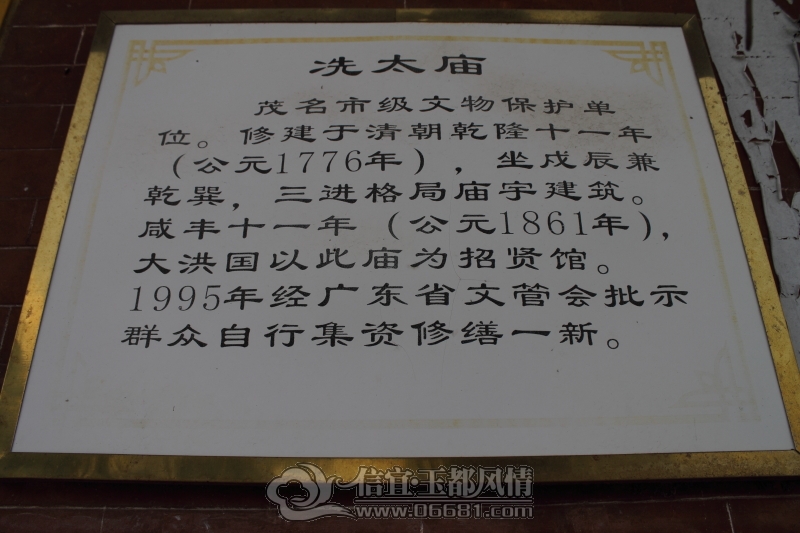 冼太庙
茂名市级文物保护单
位。修建于清朝乾隆十一年
（公元1776年），坐戌辰兼
乾巽，三进格局庙宇建筑。
咸丰十一年（公元1861年），
大洪国以此庙为招贤馆。
1995年经广东省文管会批示
群众自行集资修缮一新。
信宜·玉都风情
www.06681.com